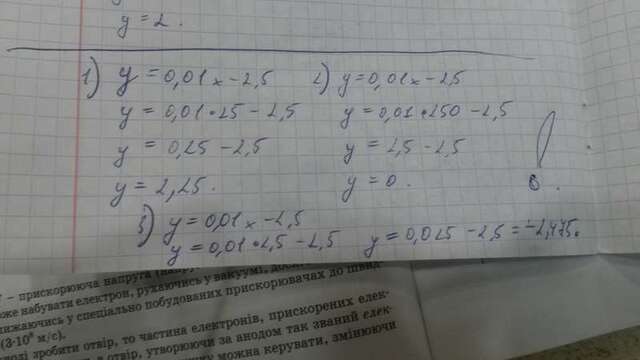 y = 2.
1) y = 0,01x - 2,5
y = 0,01 • 25 - 2,5
y = 0,25 - 2,5
y = 2,25.
2) y = 0,01x - 2,5
y = 0,01 • 250 - 2,5
y = 2,5 - 2,5
y = 0.
3) y = 0,01x - 2,5
y = 0,01 • 2,5 - 2,5 y = 0,025 - 2,5 = -2,475.
– прискорююча напруга
оже набувати електрон, рухаючись у вакуумі,
лижаючись у спеціально побудованих прискорювачах до швид-
(3·10⁸ м/с).
зробити отвір, то частина електронів, прискорених елек-
в отвір, утворюючи за анодом так званий елек-
можна керувати, змінюючи